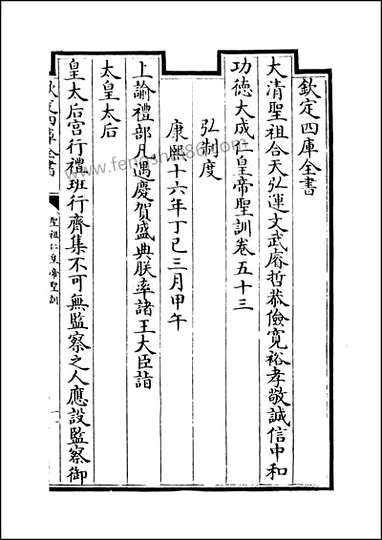 欽定四庫全書
大清聖祖合天弘運文武睿哲恭儉寬裕孝敬誠信中和
功德大成仁皇帝聖訓卷五十三
弘制度
康熙十六年丁巳三月甲午
上諭禮部凡遇慶賀盛典朕率諸王大臣詣
太皇太后
皇太后宮行禮班行齊集不可無監察之人應設監察御
欽定四庫全書
聖祖仁皇帝聖訓